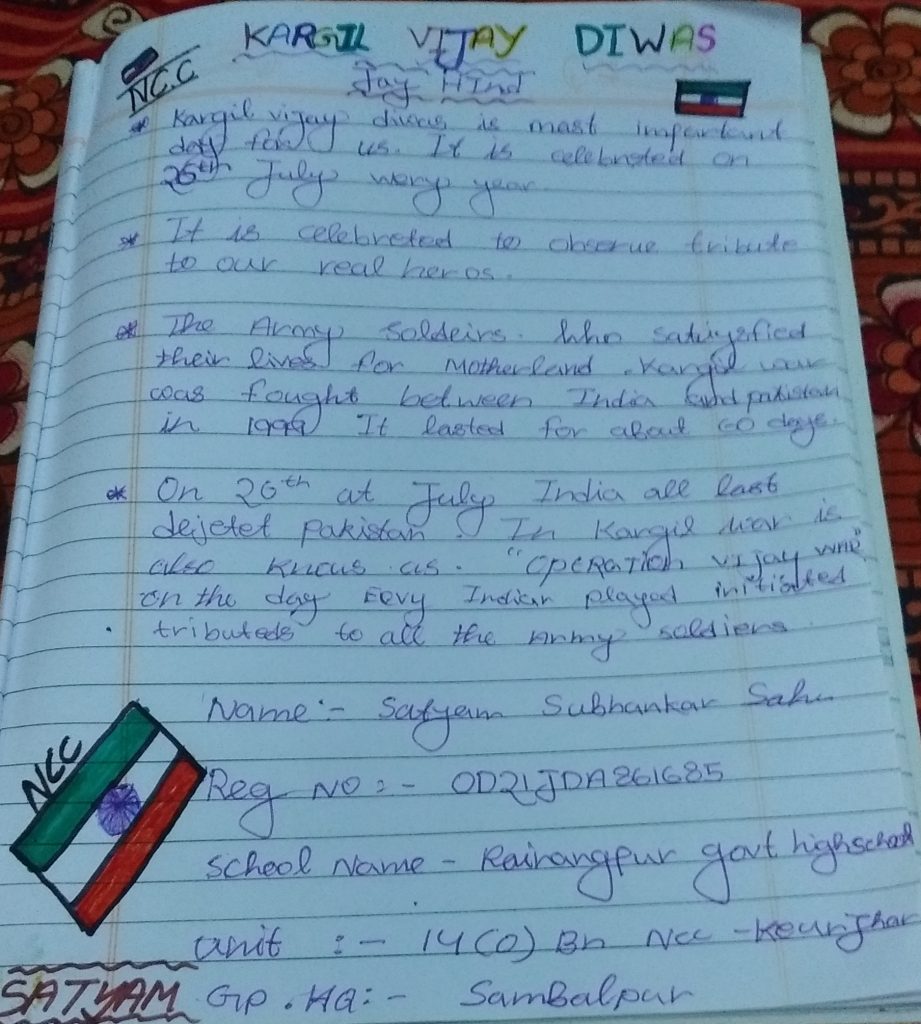 KARGIL VIJAY DIWAS
NCC
Jay HInd
* Kargil vijay diwas is mast important
day for us. It is celebreted on
26th July wery year
* It is celebreted to obserue tribute
to our real heros.
* The Army Soldeirs. Who
their lives for Motherland. Kargil war
was fought between India and pakistan
in 1999 It lasted for about 60 days.
* On 26th at July India all last
dejetet pakistan. In Kargil war is
also as. "OPERATION VIJAY WAR"
on the day Eevy Indian played initiated
tributeds to all the Army soldiers
Name:- Satyam Subhankar Sahu
NCC
Reg NO:- OD21JDA861685
School Name - Rairangpur govt highschool
unit :- 14(O) Bn Ncc - Keunjhar
SATYAM Gp. HQ:- Sambalpur